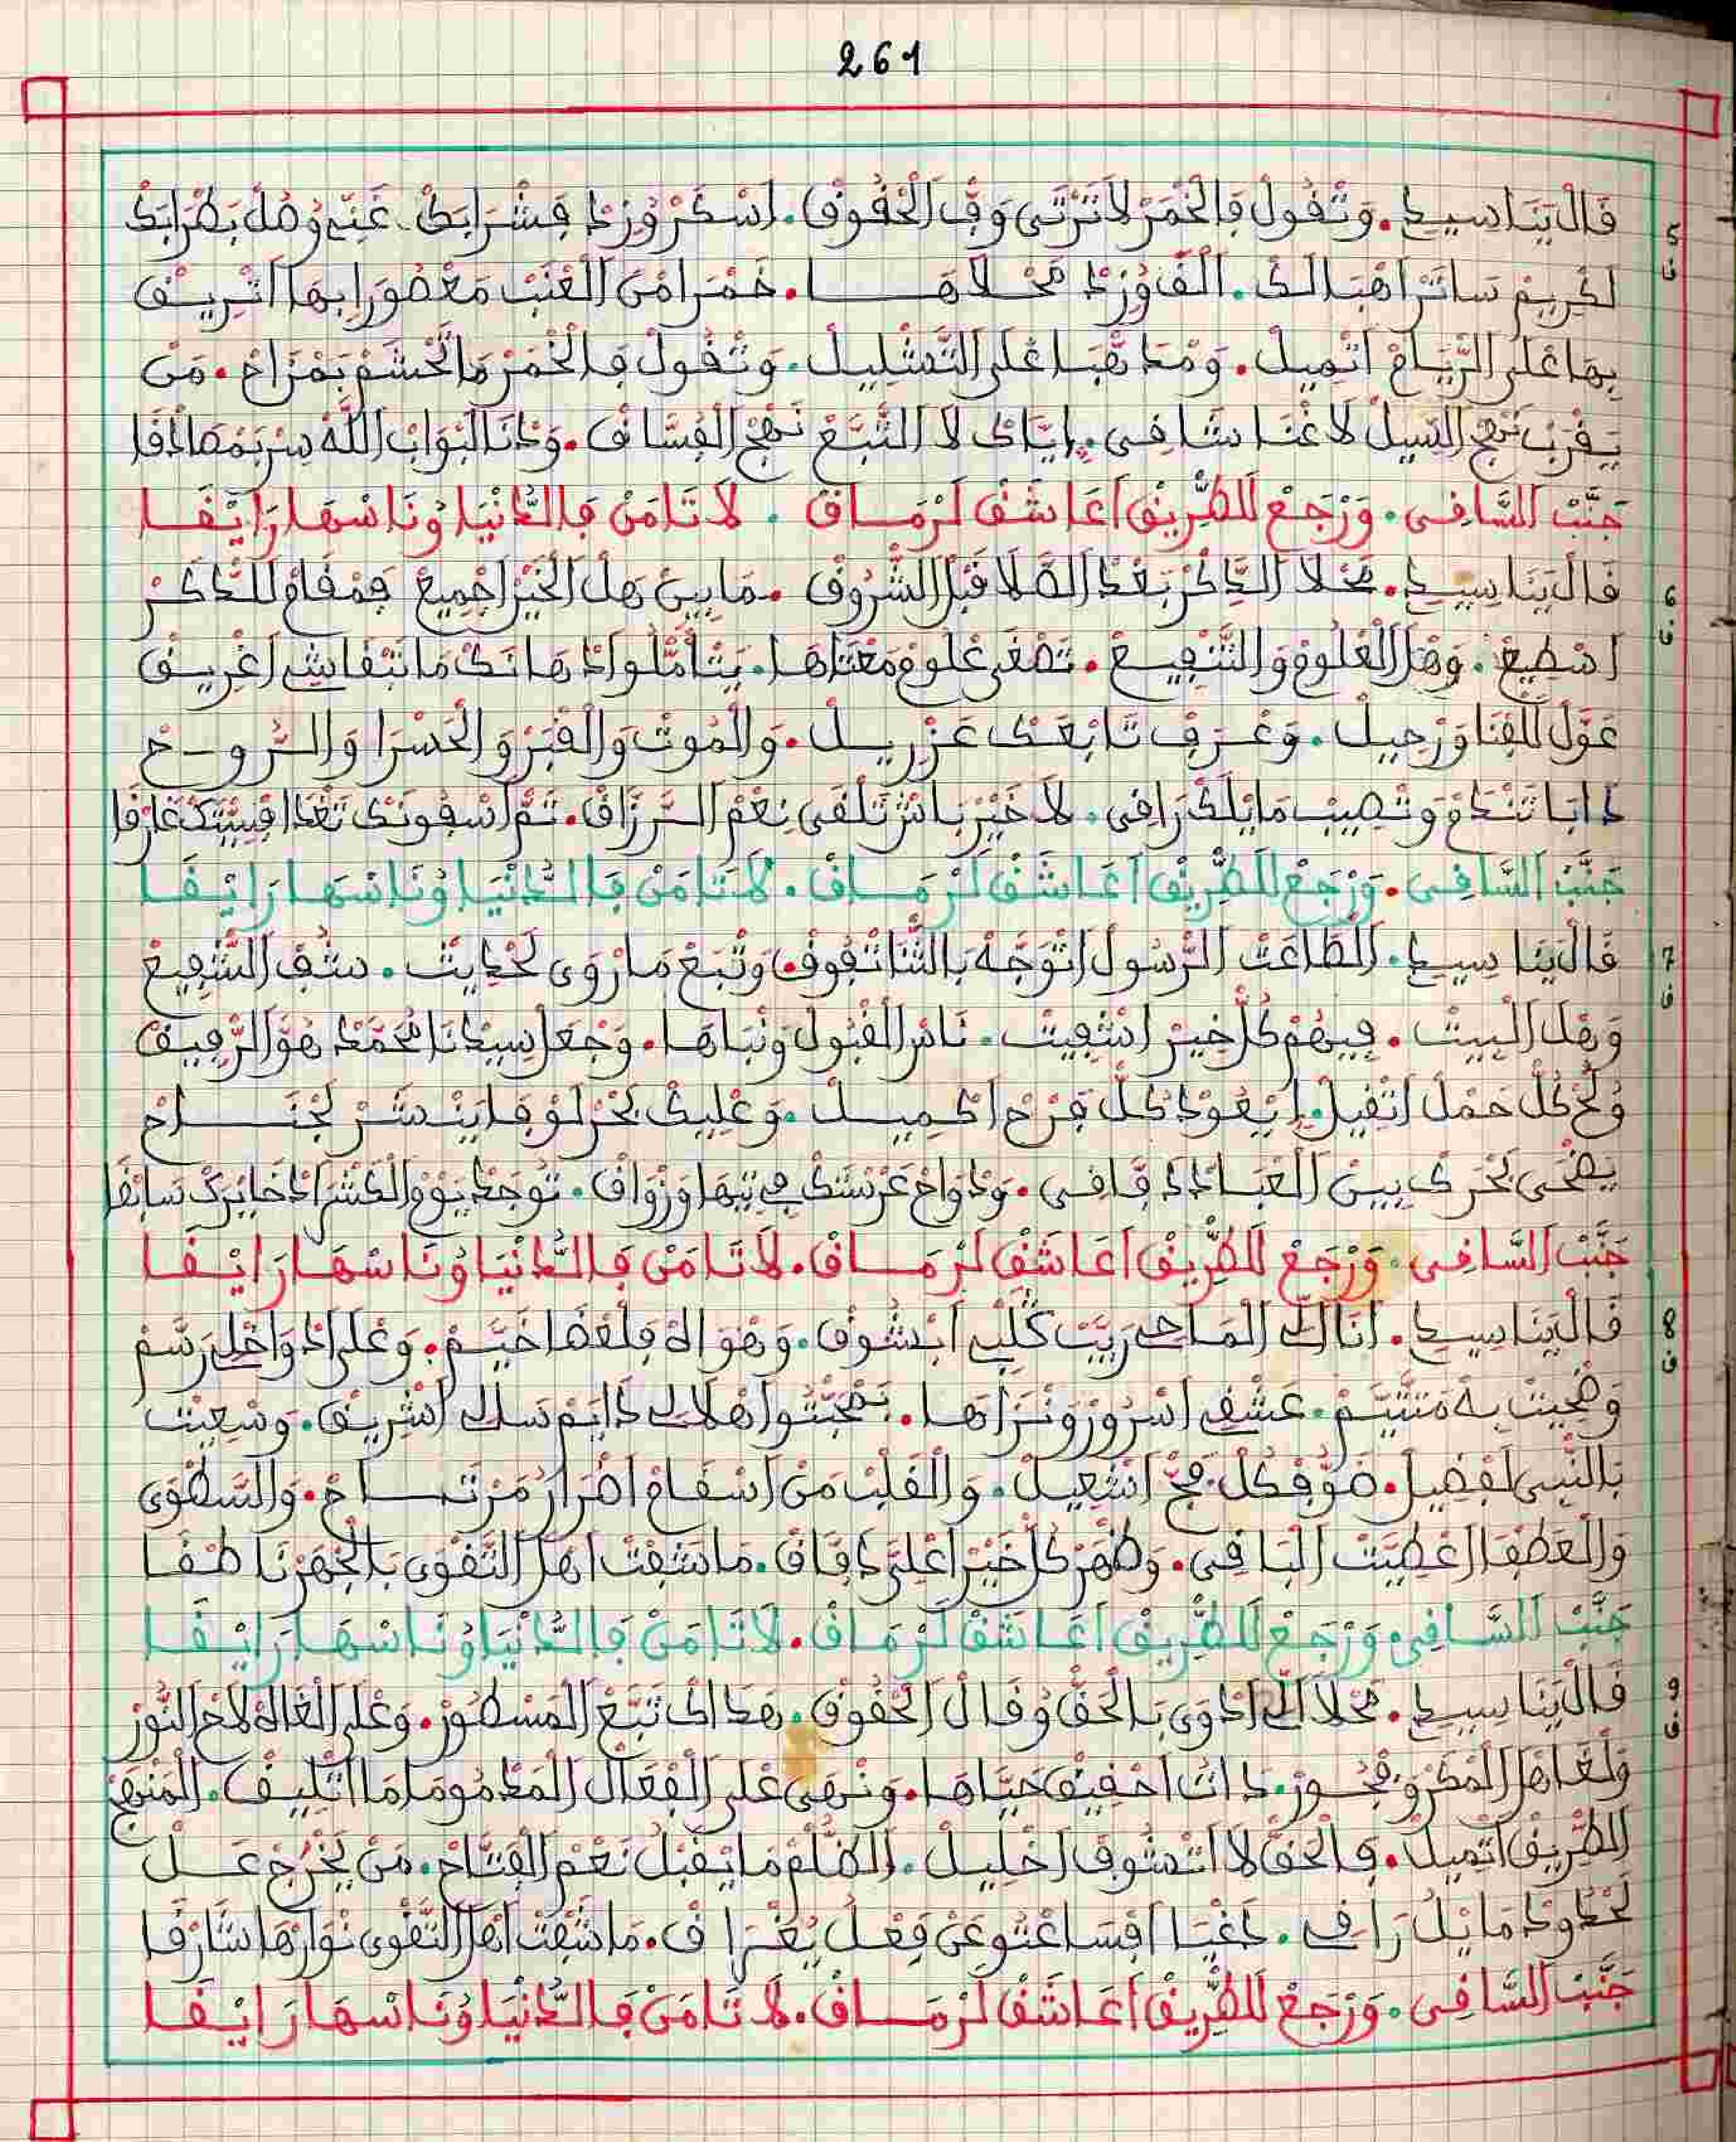 261
5 ف
قَالْ يَنَا سيدِي. وَتْقُولْ فَالْخْمَرْ لَا تَرْتَى وَفّ الْحْقُوقْ. اَسْكَرْ وْزِدْ فَشْرَابَكْ. غَنِّي وُهُلْ بَطْرَابَكْ
لَكْرِيمْ سَاتَرْ اهْبَالَكْ. مَحْلَاهَا. خَمْرَا مْنَ الْعْنَبْ مَعْصُورَا بِهَا اتْرِيقْ
بِهَا عْلَى الرّْيَاحْ اتْمِيلْ. وَتْقُولْ فَالْخْمَرْ مَا نَحْشَمْ بَمْزَاحْ. مَنْ
يَقْرَبْ نَهْجْ السِّيلْ لَا غْنَا شَافِي. اِيَّاكْ لَا اتَّبَعْ نَهْجْ الْفُسَّاقْ. وَدْنَا لَبْوَابْ اللَّهْ
جَنَّبْ السَّاقِي. وَرْجَعْ لَلطّْرِيقْ اَعَاشَقْ لَرْمَاقْ. لَا تَامَنْ فَالدَّنْيَا وُنَاسْهَا رَايْقَا
6 ف
قَالْ يَنَا سيدِي. مَحْلَا الذِّكْرْ بَعْدْ الصّْلَا قْبَلْ الشّْرُوقْ. مَا بِينْ هَلْ الْخَيْرْ اجْمِيعْ فَمْقَامْ لَلذّْكَرْ
اسْطِيعْ. وَهَلْ الْعْلُومْ وَالتَّشْفِيعْ. تَصْغَى عْلُومْ مَعْنَاهَا. يَتْأَمّْلُوا ادْهَانَكْ مَا تَبْقَاشِي اغْرِيقْ
عَوَّلْ لَلْفْنَا وَرْحِيلْ. وَعْرَفْ تَابْعَكْ عَزْرِيلْ. وَالْمُوتْ وَالْقْبَرْ وَالْحَسْرَا وَالرُّوحْ
دَابَا تَنْدَمْ وَتْصِيبْ مَا يْلَكْ رَافِي. لَا خَيْرْ بَاشْ تَلْقَى نِعْمْ الرَّزَّاقْ.
جَنَّبْ السَّاقِي. وَرْجَعْ لَلطّْرِيقْ اَعَاشَقْ لَرْمَاقْ. لَا تَامَنْ فَالدَّنْيَا وُنَاسْهَا رَايْقَا
7 ف
قَالْ يَنَا سيدِي. الْطَاعَتْ الرّْسُولْ اتْوَجَّهْ بَالثّْنَا تْفُوقْ وَتْبَعْ مَا رْوَى لَحْدِيثْ. الشّْفِيعْ
وَهْلْ الْبِيتْ. فِيهُمْ كُلْ خَيْرْ اشْفِيتْ. نَاسْ الْقْبُولْ وَنْبَاهَا. وَجْعَلْ سِيدْنَا مُحَمَّدْ هُوَ الرّْفِيقْ
كُلّْ حَمْلْ اتْقِيلْ. يْعُودْ كُلّْ فَرْحْ اكْمِيلْ. وَعْلِيكْ بَحْرْ لَوْفَا يَنْشَرْ لَجْنَاحْ
يَضْحَى بَحْرَكْ بِينْ الْعْبَادْ دَفَّاقِي. تُوجَدْ يَوْمْ الْحَشْرْ ادْخَايْرَكْ سَابْقَا
جَنَّبْ السَّاقِي. وَرْجَعْ لَلطّْرِيقْ اَعَاشَقْ لَرْمَاقْ. لَا تَامَنْ فَالدَّنْيَا وُنَاسْهَا رَايْقَا
8 ف
قَالْ يَنَا سيدِي. اَنَا الْمَاحِي رَيَّبْ كُلِّي ابْشُوقْ. وَهْوَاهْ فَلْعْضَا خَيَّمْ. وَعْلَى ادْوَاخْلِي رَسَّمْ
وَضْحِيتْ بِهْ مَتْيَّمْ. عَشْقِي اسْرُورْ وَنْزَاهَا. دَايَمْ سَالَكْ اشْرِيقْ. وَسْعِيتْ
بَالنّْبِي لَفْضِيلْ. ضَوُّهْ كُلْ فَجّْ اشْعِيلْ. وَالْقَلْبْ مَنْ اسْقَامْ اضْرَارُ مَرْتَاحْ. وَالسَّطْوَى
وَالْعَطْفَا اعْطِيتْ الْبَاقِي. وَظْهَرْ كُلْ خَيْرْ اعْلَى دْفَاقْ. مَا شَفْتْ اهْلْ التَّقْوَى بَالْجْهَرْ نَاطْقَا
جَنَّبْ السَّاقِي. وَرْجَعْ لَلطّْرِيقْ اَعَاشَقْ لَرْمَاقْ. لَا تَامَنْ فَالدَّنْيَا وُنَاسْهَا رَايْقَا
9 ف
قَالْ يَنَا سيدِي. مَحْلَا الِّي ادْوَى بَالْحَقّْ وُقَالْ الْحْقُوقْ. هَدَاكْ تَبَّعْ الْمَسْطُورْ. وَعْلَى الْغَاهْ لَاحْ النُّورْ
وَلْغَا هَلْ الْمْكَرْ وَفْجُورْ. دَاتْ احْفِيفْ حْيَاهَا. وَنْهَى عْلَى الْفْعَالْ الْمَدْمُومَا مَا اتْلِيقْ. الْمَنْهَجْ
الطّْرِيقْ اتْمِيلْ. فَالْحَقّْ لَا اتْشُوفْ اخْلِيلْ. الظُّلْمْ مَا يْقَبْلُ نَعْمْ الْفَتَّاحْ. مَنْ يَخْرُجْ عَلْ
لَحْدُودْ مَا يْلُ رَاقِي. فِعْلُ يُغْرَاقْ. مَا شَفْتْ اهْلْ التَّقْوَى نْوَارْهَا شَارْقَا
جَنَّبْ السَّاقِي. وَرْجَعْ لَلطّْرِيقْ اَعَاشَقْ لَرْمَاقْ. لَا تَامَنْ فَالدَّنْيَا وُنَاسْهَا رَايْقَا